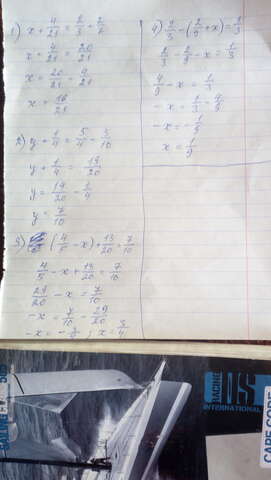 1) x + 4/21 = 2/3 + 2/7
x + 4/21 = 20/21
x = 20/21 - 4/21
x = 16/21
2) y + 1/4 = 5/4 - 3/10
y + 1/4 = 19/20
y = 19/20 - 1/4
y = 7/10
3) (4/5 - x) + 13/20 = 7/10
4/5 - x + 13/20 = 7/10
29/20 - x = 7/10
-x = 7/10 - 29/20
-x = -3/4 ; x = 3/4
4) 2/3 - (2/9 + x) = 1/3
2/3 - 2/9 - x = 1/3
4/9 - x = 1/3
-x = 1/3 - 4/9
-x = -1/9
x = 1/9
RACING
INTERNATIONAL
CARE CODE